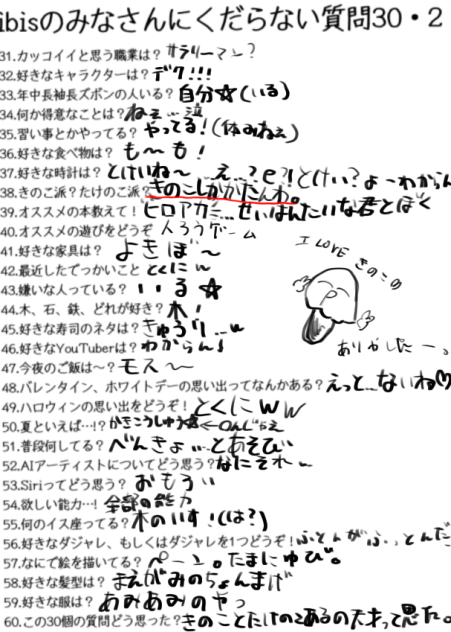 ibisのみなさんにくだらない質問30・2
31.カッコイイと思う職業は？サラリーマン？
32.好きなキャラクターは？デク!!!
33.年中長袖長ズボンの人いる？自分☆(いる)
34.何か得意なことは？ねぇ…泣
35.習い事とかやってる？やってる!(体みねぇ)
36.好きな食べ物は？も～も!
37.好きな時計は？とけいね～…え…?と?!とけい？よーわからん
38.きのこ派？たけのこ派？きのこしかかたんわ。
39.オススメの本教えて！ヒロアカ…せいはんたいな君とぼく
40.オススメの遊びをどうぞ 人ろうゲーム
41.好きな家具は？よきぼ～
42.最近したでっかいこと とくにw
43.嫌いな人っている？いる☆
44.木、石、鉄、どれが好き？木!
45.好きな寿司のネタは？きゅうり…w
46.好きなYouTuberは？わからん!
47.今夜のご飯は～？モス～
48.バレンタイン、ホワイトデーの思い出ってなんかある？えっと…ないね♡
49.ハロウィンの思い出をどうぞ！とくにww
50.夏といえば…!?かきこうしゅう
51.普段何してる？べんきょ…とあそび
52.AIアーティストについてどう思う？なにそれ…
53.Siriってどう思う？おもろい
54.欲しい能力…！全部の能力
55.何のイス座ってる？木のいす!(は?)
56.好きなダジャレ、もしくはダジャレを1つどうぞ！ふとんがふっとんだ
57.なにで絵を描いてる？ぺーン。たまにゆび。
58.好きな髪型は？まえがみのちょんまげ
59.好きな服は？あみあみのやつ
60.この30個の質問どう思った？きのことたけのこあるの天才って思た。
I LOVE きのこの
ありがしたー。